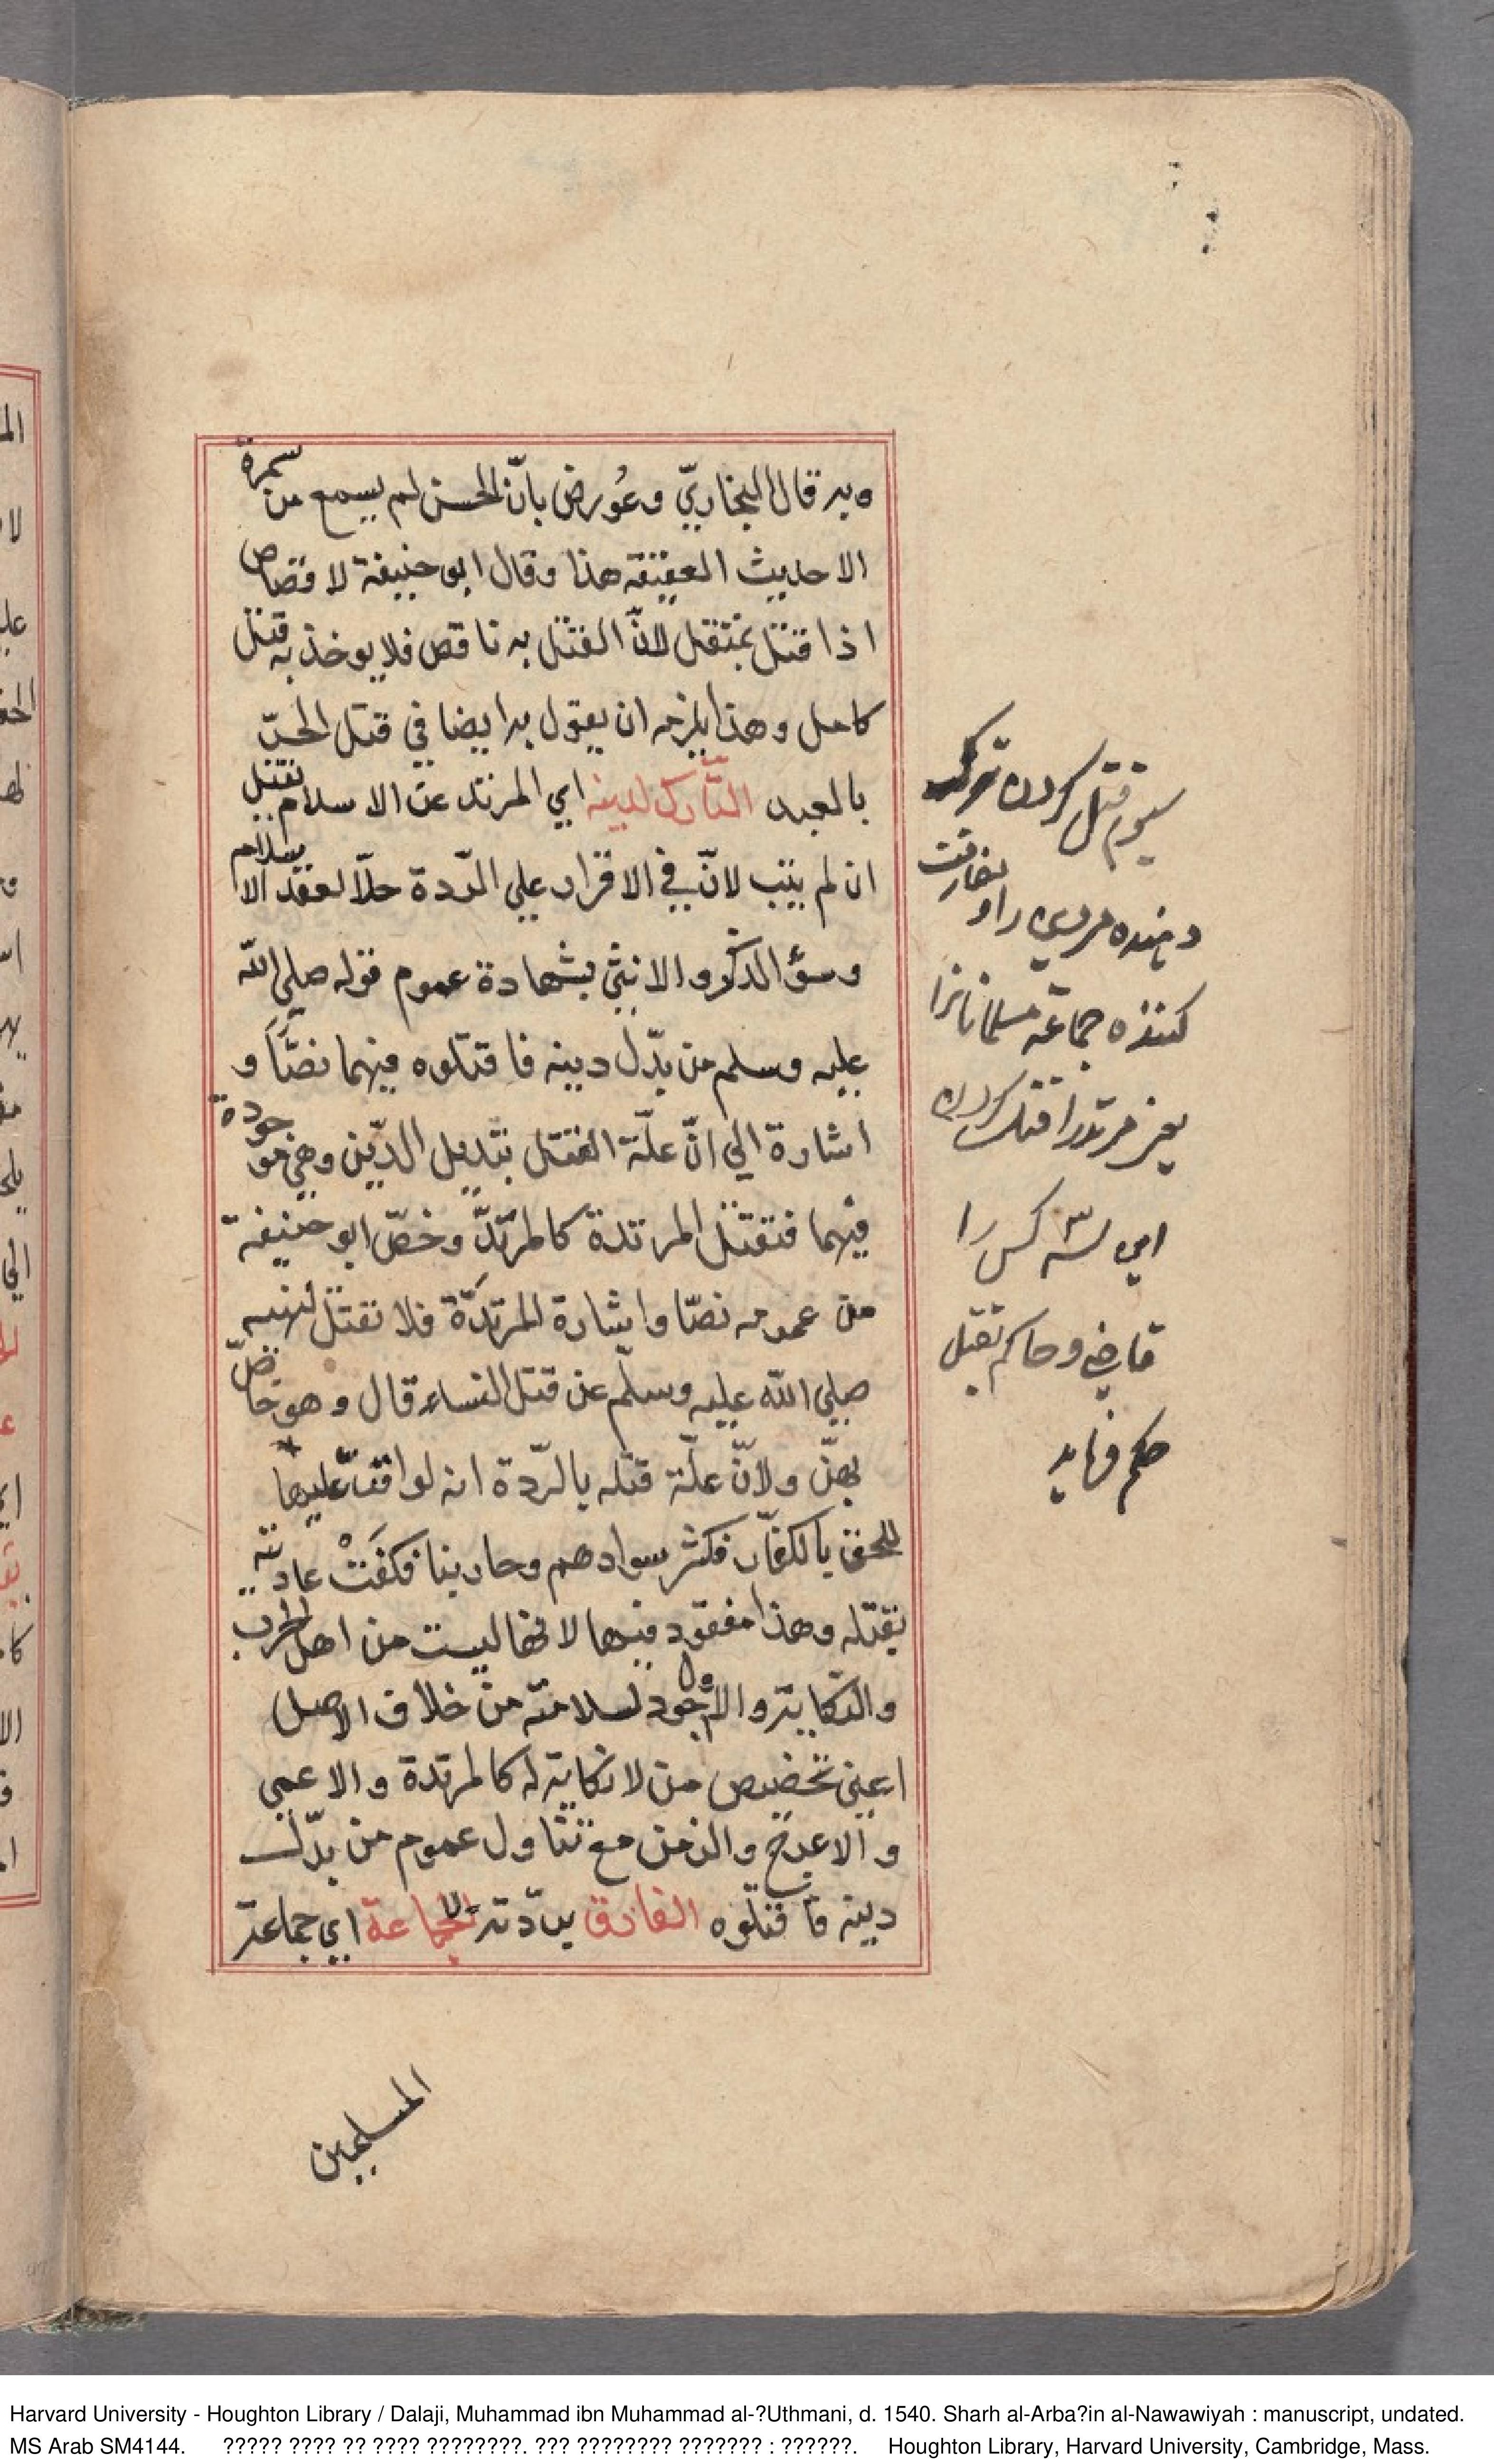 وبه قال البخاريّ وعُورض بانّ الحسن لم يسمع من سمرة
الا حديث العقيقه هذا وقال ابو حنيفة لا قصاص
اذا قتل بمثقل لانّ القتل به ناقص فلا يوخذ به قتل
كامل وهذا يلزمه ان يقول به ايضا في قتل الحرّ
بالعبد التّارك لدينه اي المرتد عن الاسلام بقتل
ان لم يتب لانّ في الاقرار علي الرّدة حلّا لعقد الاسلام
وسوٓ الذكر والانثي بشهادة عموم قوله صلي الله
عليه وسلم من بدّل دينه فاقتلوه فيهما نصّاً و
اشارة الي انّ علّة القتل بتديل الدّين وهي موجودة
فيهما فتقتل المرتدة كالمرتدّ وخصّ ابو حنيفة
من عمومه نصّا واشارة المرتدّة فلا تقتل لنهيه
صلي الله عليه وسلّم عن قتل النساء قال وهو خاصّ
بهنّ ولانّ علّة قتله بالرّدة انه لو افتات عليها
للحق بالكفّار فكثر سوادهم وحاربنا فكفَتْ عاديته
بقتله وهذا مفقود فيها لانها ليست من اهل الحرب
والنكاية والاول اجود لسلامته من خلاف الاصل
اعني تخصيص من لا نكاية له كالمرتدة والاعمي
والاعرج والزمن مع تناول عموم من بدّل
دينه فاقتلوه الفارق بردّته الجماعة اي جماعة
المسلمين
سيوم قتل كردن ترك
دهنده مردين را ومفارقت
كننده جماعة مسلمانانرا
يعني مرتد را قتل كردن
اين سه كس را
قاضي وحاكم بقتل
حكم فرمايد
Harvard University - Houghton Library / Dalaji, Muhammad ibn Muhammad al-?Uthmani, d. 1540. Sharh al-Arba?in al-Nawawiyah : manuscript, undated.
MS Arab SM4144. ????? ???? ?? ???? ????????. ??? ???????? ??????? : ??????. Houghton Library, Harvard University, Cambridge, Mass.